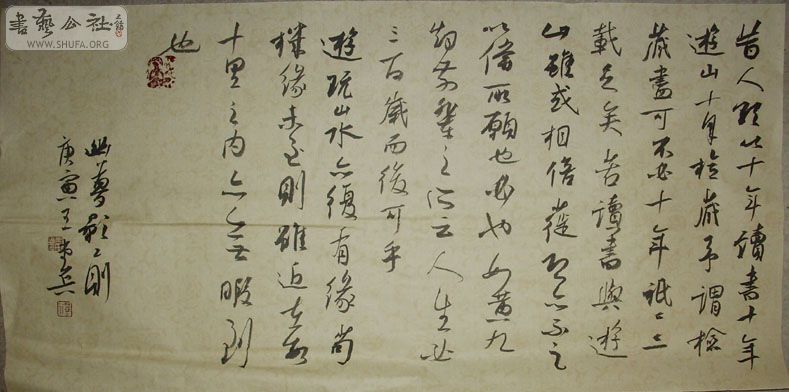 書藝公社
WWW.SHUFA.ORG
昔人欲以十年讀書十年
遊山十年檢歲予謂檢
歲盡可不必十年祇二三
載足矣若讀書與遊
山雖或相倍蓰恐亦不足
以償所願也必也如黃九
煙前輩之所云人生必
三百歲而後可乎
遊玩山水亦復有緣苟
機緣未至則雖近在數
十里之內亦無暇到
也
幽夢影二則
庚寅王